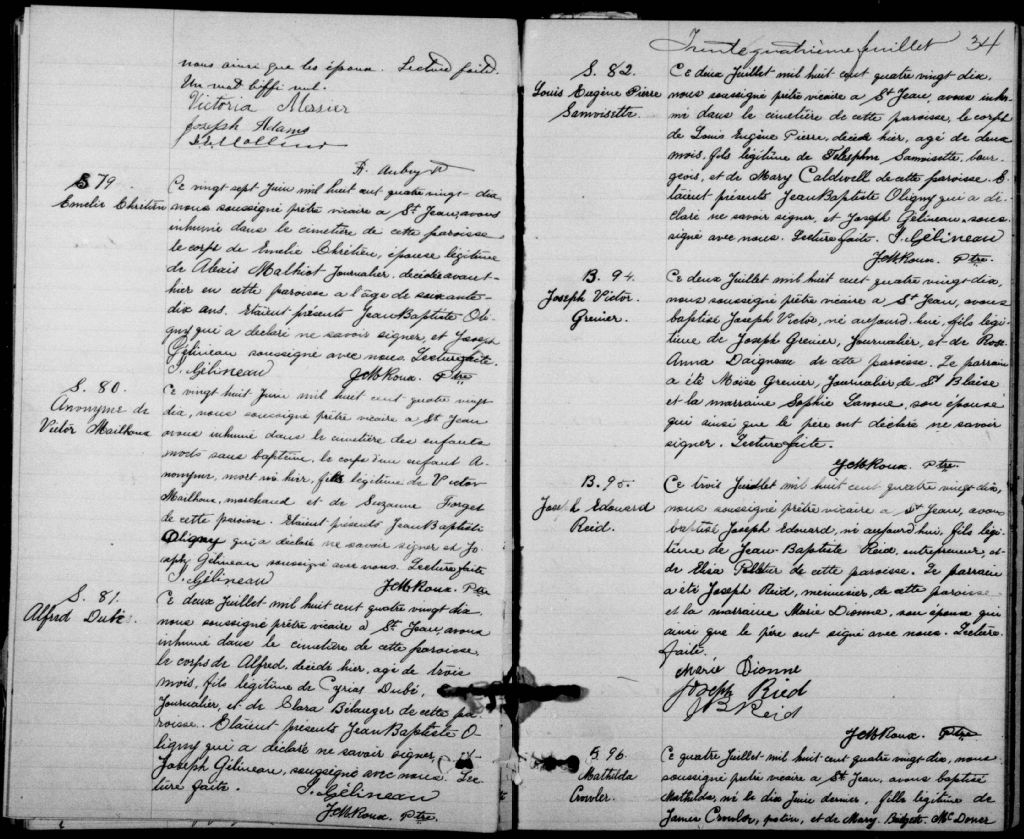 nous ainsi que les époux. Lecture faite.
Un mot biffé nul.
Victoria Messier
Joseph Adams
F. Aubry Ptre
S 79.
Emelie Chrétien
Ce vingt sept Juin mil huit cent quatre vingt-dix
nous soussigné prêtre vicaire a St Jean, avons
inhumé dans le cimetière de cette paroisse
le corps de Emelie Chrétien, épouse légitime
de Alexis Malhiot Journalier, décédée avant-
hier en cette paroisse a l'âge de soixante-
dix ans. Etaient présents Jean Baptiste Oli-
gny qui a déclaré ne savoir signer, et Joseph
Gélineau soussigné avec nous. Lecture faite.
J. Gélineau
Ptre
S. 80.
Anonyme de
Victor Mailhoux
Ce vingt huit Juin mil huit cent quatre vingt
dix, nous soussigné prêtre vicaire a St Jean
avons inhumé dans le cimetière des enfants
morts sans baptême, le corps d'un enfant A-
nonyme, mort né hier, fils légitime de Victor
Mailhoux, marchand et de Suzanne Forget
de cette paroisse. Etaient présents Jean Baptiste
Oligny qui a déclaré ne savoir signer et Jo-
seph Gélineau soussigné avec nous. Lecture faite
J. Gélineau
Ptre
S. 81.
Alfred Dubé.
Ce deux Juillet mil huit cent quatre vingt dix
nous soussigné prêtre vicaire à St Jean, avons
inhumé dans le cimetière de cette paroisse,
le corps de Alfred, décédé hier, agé de trois
mois, fils légitime de Cyrias Dubé,
Journalier, et de Clara Bélanger de cette pa-
roisse. Etaient présents Jean Baptiste O-
ligny qui a déclaré ne savoir signer, et
Joseph Gélineau, soussigné avec nous. Lec-
ture faite.
J. Gélineau
Ptre.
Trente quatrième feuillet 34
S. 82.
Louis Eugène Pierre
Samoisette.
Ce deux Juillet mil huit cent quatre vingt dix,
nous soussigné prêtre vicaire a St Jean, avons inhu-
mé dans le cimetière de cette paroisse, le corps
de Louis Eugène Pierre, décédé hier, agé de deux
mois, fils légitime de Télesphore Samoisette, bour-
geois, et de Mary Caldwell de cette paroisse. E-
taient présents Jean Baptiste Oligny qui a dé-
claré ne savoir signer, et Joseph Gélineau, sous-
signé avec nous. Lecture faite. J. Gélineau
Ptre.
B. 94.
Joseph Victor
Grenier.
Ce deux Juillet mil huit cent quatre vingt-dix,
nous soussigné prêtre vicaire a St Jean, avons
baptisé Joseph Victor, né aujourd'hui, fils légi-
time de Joseph Grenier, Journalier, et de Rose
Anna Daigneau de cette paroisse. Le parrain
a été Moise Grenier, Journalier de St Blaise
et la marraine Sophie Lanoue, son épouse
qui ainsi que le père ont déclaré ne savoir
signer. Lecture faite.
Ptre.
B. 95.
Joseph Edouard
Reid.
Ce trois Juillet mil huit cent quatre vingt dix,
nous soussigné prêtre vicaire a St Jean, avons
baptisé Joseph Edouard, né aujourd'hui, fils légi-
time de Jean-Baptiste Reid, entrepreneur, et
de Elisa Pelletier de cette paroisse. Le parrain
a été Joseph Reid, menuisier, de cette paroisse
et la marraine Marie Dionne, son épouse qui
ainsi que le père ont signé avec nous. Lecture
faite.
Marie Dionne
Joseph Ried
J B Reid
Ptre.
B 96.
Mathilda
Crowler.
Ce quatre Juillet mil huit cent quatre vingt dix, nous
soussigné prêtre vicaire a St Jean, avons baptisé
Mathilda, né le dix Juin dernier, fille légitime de
James Crowler, potier, et de Mary Bridgett McDoner